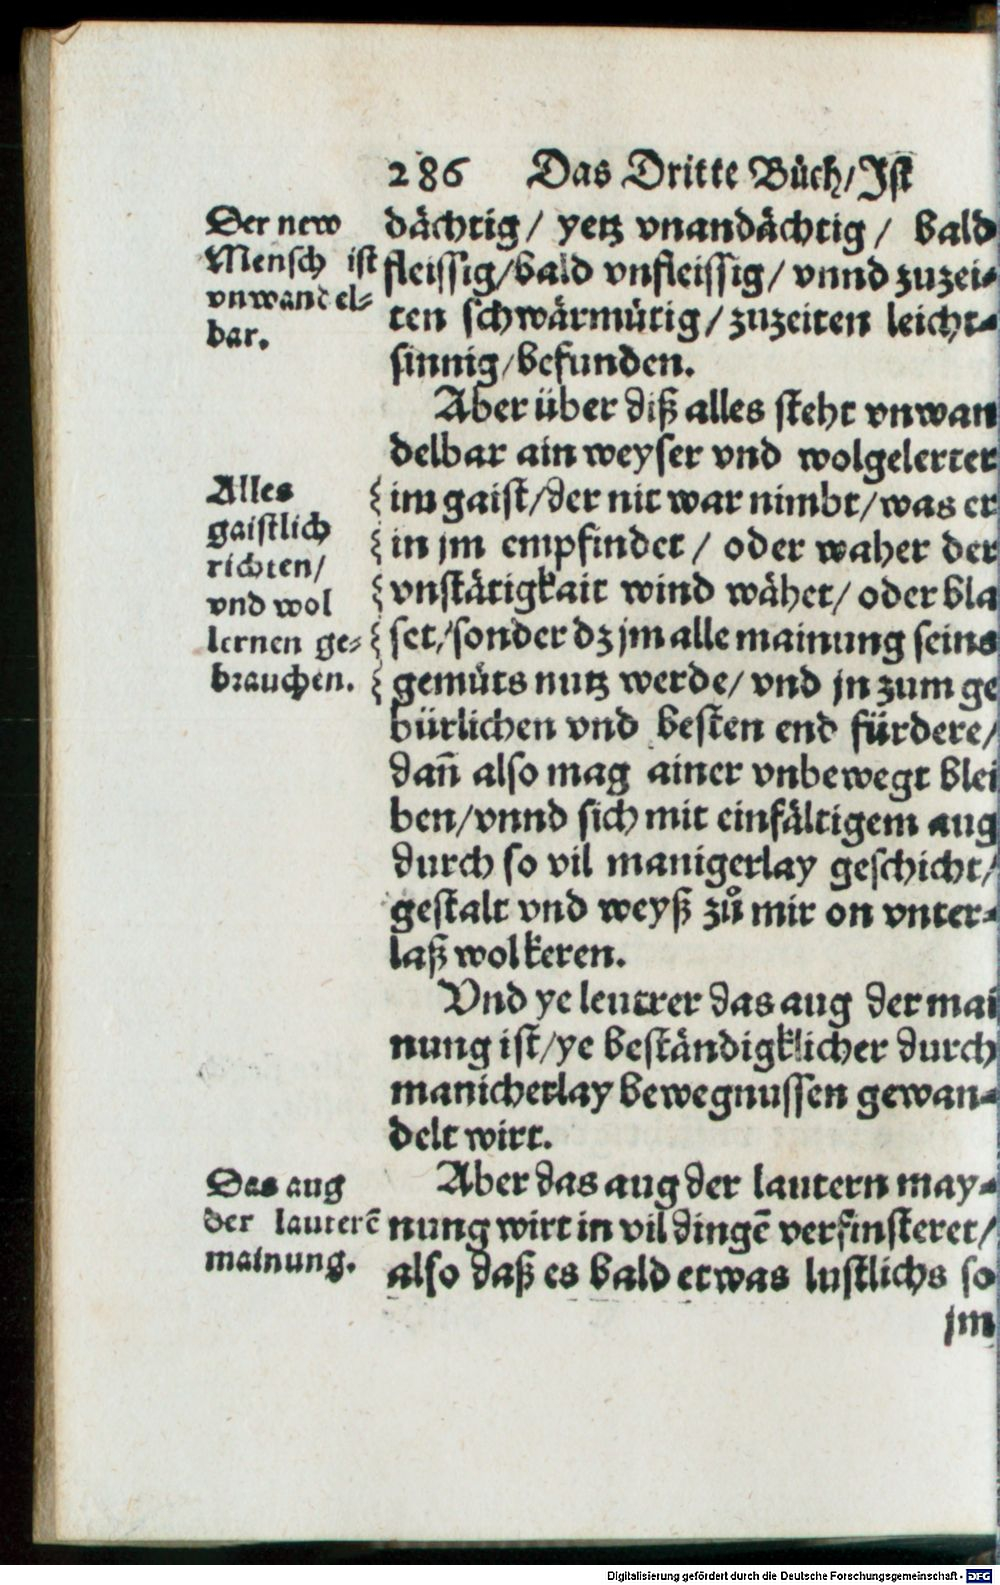 286 Das Dritte Bůch/ Ist
Der new
Mensch ist
vnwandel⸗
bar.
dächtig/ yetz vnandächtig/ bald
fleissig/bald vnfleissig/ vnnd zuzei⸗
ten schwärmütig/zuzeiten leicht⸗
sinnig/befunden.
Aber über diß alles steht vnwan
delbar ain weyser vnd wolgelerter
Alles
gaistlich
richten/
vnd wol
lernen ge⸗
brauchen.
im gaist/der nit war nimbt/was er
in jm empfindet/ oder waher der
vnstätigkait wind wähet/ oder bla
set/sonder dz jm alle mainung seins
gemüts nutz werde/ vnd jn zum ge
bürlichen vnd besten end fürdere/
dañ also mag ainer vnbewegt blei
ben/vnnd sich mit einfältigem aug
durch so vil manigerlay geschicht/
gestalt vnd weyß zů mir on vnter⸗
laß wol keren.
Vnd ye leutrer das aug der mai
nung ist/ye beständigklicher durch
manicherlay bewegnussen gewan⸗
delt wirt.
Das aug
der lauterẽ
mainung.
Aber das aug der lautern may⸗
nung wirt in vil dingẽ verfinsteret/
also daß es bald etwas lustlichs so
jm
Digitalisierung gefördert durch die Deutsche Forschungsgemeinschaft - DFG